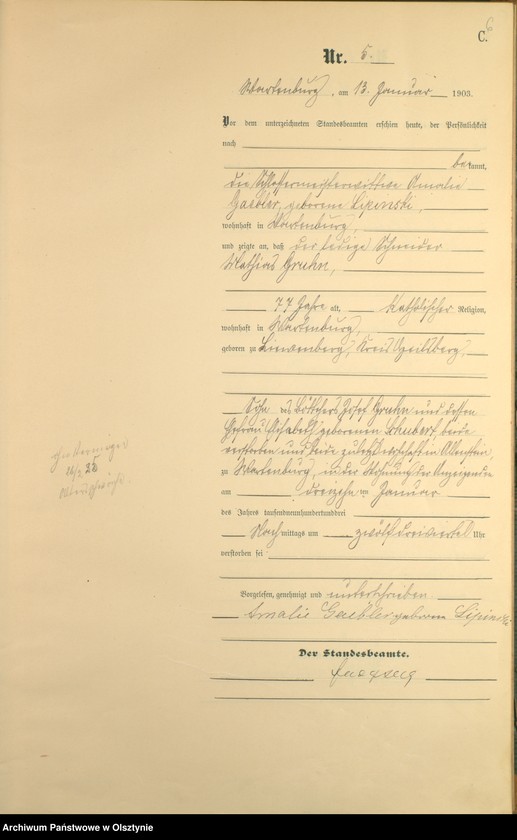 6
C.
Nr. 5.
Wartenburg, am 13. Januar 1903.
Vor dem unterzeichneten Standesbeamten erschien heute, der Persönlichkeit
nach
bekannt,
die Schlossermeisterwittwe Amalie
Gaebler, geborene Lipinski,
wohnhaft in Wartenburg,
und zeigte an, daß der ledige Schneider
Mathias Gruhn,
77 Jahre alt, katholischer Religion,
wohnhaft in Wartenburg,
geboren zu Liewenberg, Kreis Heilsberg,
Sohn des Böttchers Josef Gruhn und dessen
Ehefrau Elisabeth geborenen Schubert, beide
verstorben und beide zuletzt wohnhaft in Allenstein,
zu Wartenburg, in der Wohnung der Anzeigenden
am dreizehnten Januar
des Jahres tausendneunhundertunddrei
Nachmittags um zwölf dreiviertel Uhr
verstorben sei
Vorgelesen, genehmigt und unterschrieben
Amalie Gaebler geborene Lipinski
Der Standesbeamte.
Archiwum Państwowe w Olsztynie